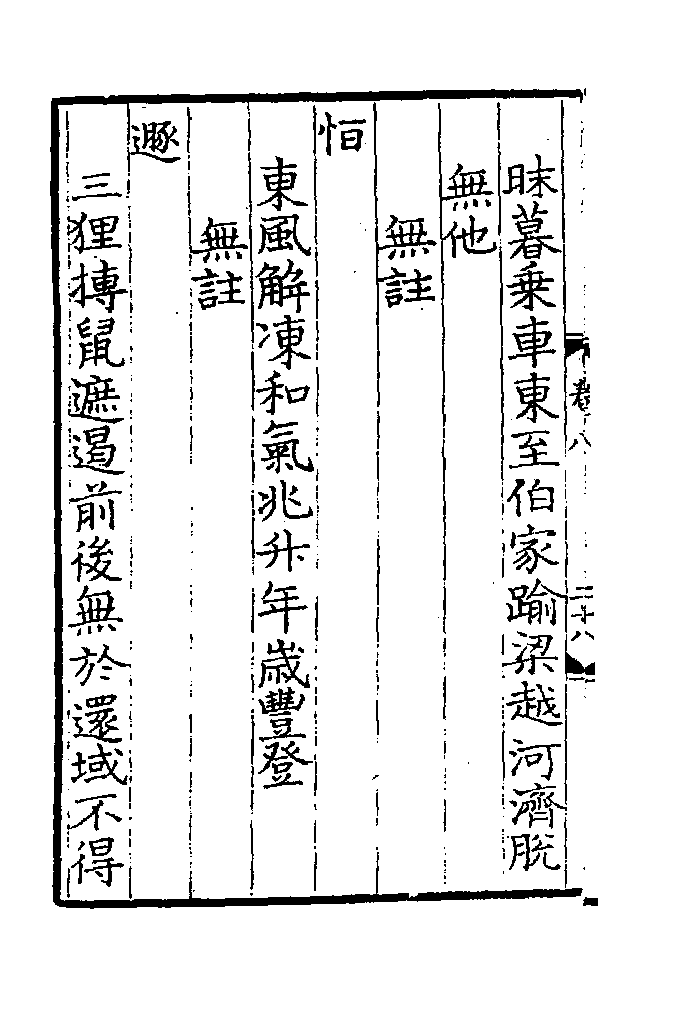 昧暮乗車東至伯家踰梁越河濟脫
無他
無註
恒
東風解凍和氣兆升年嵗豐登
無註
遯
三狸搏鼠遮遏前後無於還域不得
卷八
二十八